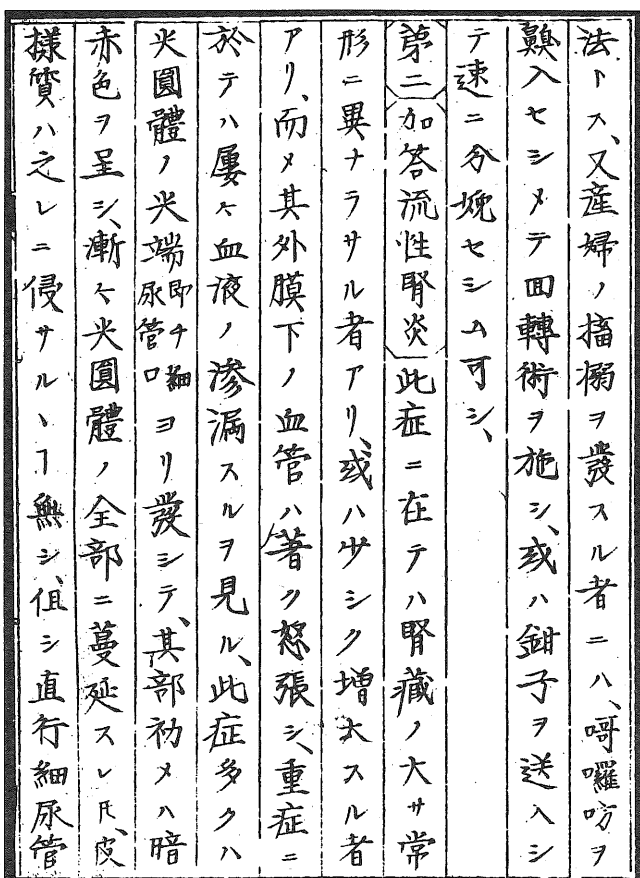 法トス、又産婦ノ搐搦ヲ發スル者ニハ、哥囉吩ヲ
齅入セシメテ回轉術ヲ施シ、或ハ鉗子ヲ送入シ
テ速ニ分娩セシム可シ、
第二加答流性腎炎此症ニ在テハ腎藏ノ大サ常
形ニ異ナラサル者アリ、或ハ少シク増大スル者
アリ、而メ其外膜下ノ血管ハ著ク怒張シ、重症ニ
於テハ屢々血液ノ滲漏スルヲ見ル、此症多クハ
尖圓體ノ尖端即チ細尿管口ヨリ發シテ、其部初メハ暗
赤色ヲ呈シ、漸々尖圓體ノ全部ニ蔓延スレ𪜈、皮
様質ハ之レニ侵サルヽヿ無シ、伹シ直行細尿管